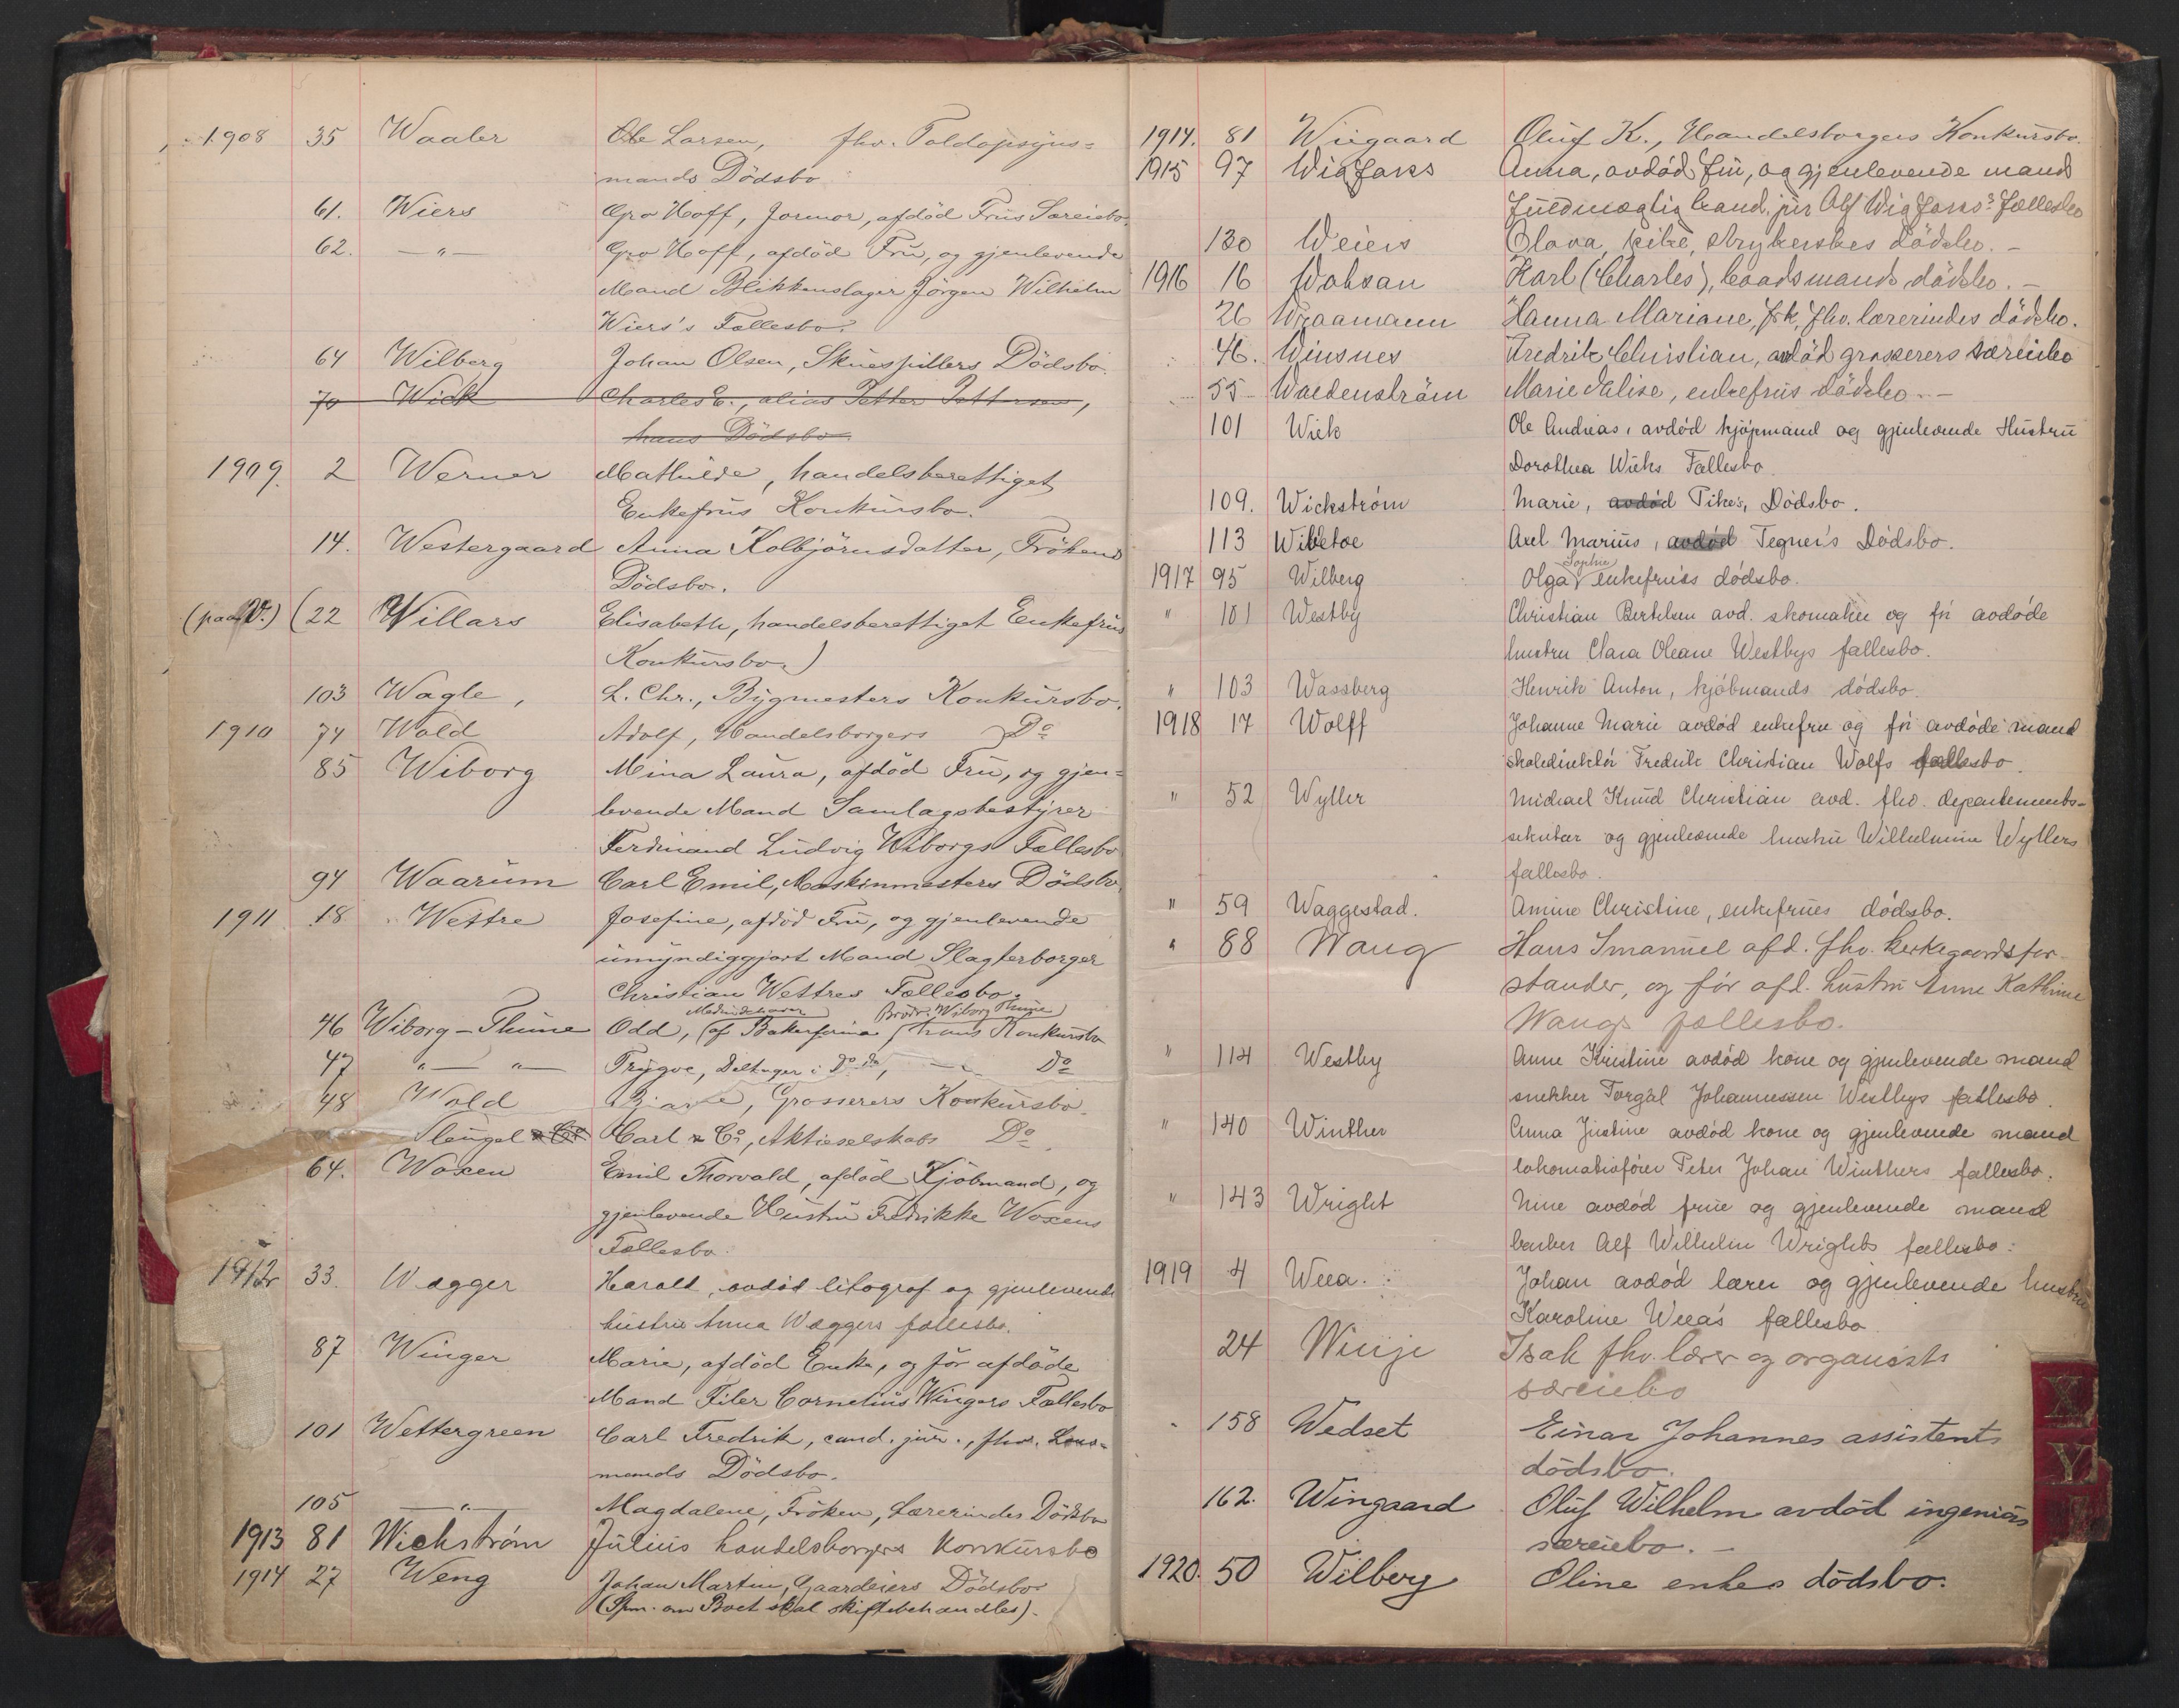 1908 35 Waaler Ole Larsen, fhv. Toldopsyns=
mands Dödsbo
61. Wiers Gro Hoff, Jormor, afdöd Frus Særeiebo.
62. —"— Gro Hoff, afdöd Fru, og gjenlevende
Mand Blikkenslager Jörgen Wilhelm
Wiers's Fællesbo.
64 Wilberg Johan Olsen, Skuespillers Dödsbo.
70 Wick Charles E., alias Petter Pettersen,
hans Dödsbo
1909. 2 Werner Mathilde, handelsberettiget
Enkefrus Konkursbo.
14. Westergaard Anna Kolbjörnsdatter, Frökens
Dödsbo.
(paa V.) (22 Willars Elisabeth, handelsberettiget Enkefrus
Konkursbo)
103 Wagle, L. Chr., Bygmesters Konkursbo.
1910 74 Wold Adolf, Handelsborgers Do
85 Wiborg Mina Laura, afdöd Fru, og gjen=
levende Mand Samlagsbestyrer
Ferdinand Ludvig Wiborgs Fællesbo
94 Waarum Carl Emil, Maskinmesters Dödsbo.
1911 18 Wettre Josefine, afdöd Fru, og gjenlevende
umyndiggjort Mand Slagterborger
Christian Wettres Fællesbo.
Medindehaver Brödr. Wiborg Thune
46 Wiborg-Thune Odd, (af Bakerfirma hans Konkursbo
47 "— "— Trygve, Deltager i Do Do, — Do
48 Wold Bjarne, Grosserers Konkursbo.
Slengel & Co Carl & Co, Aktieselskabs Do
64. Woxen Emil Thorvald, afdöd Kjöbmand, og
gjenlevende Hustru Fredrikke Woxens
Fællesbo.
1912 33. Wægger Harald, avdöd litograf og gjenlevende
hustru Anna Wæggers fællesbo.
87 Winger Marie, afdöd Enke, og för afdöde
Mand Filer Cornelius Wingers Fællesbo
101 Wettergreen Carl Fredrik, cand. jur., fhv. Lens=
mands Dödsbo.
105 —"— Magdalene, Fröken, Lærerindes Dödsbo
1913 81 Wickström Julius handelsborgers Konkursbo
1914 27 Weng Johan Martin, Gaardeiers Dödsbo
(Spm. om Boet skal skiftebehandles).
1914. 81 Wiegaard Oluf K., Handelsborgers Konkursbo.
1915 97 Wigfoss Anna, avdöd fru, og gjenlevende mand
fuldmægtig cand. jur Olf Wigfoss' fællesbo
130 Weiers Olava, pike, strykerskes dödsbo. —
1916 16 Wolsan Karl (Charles), baadsmands dödsbo. —
26 Wraamann Hanna Mariane, frk, fhv. lærerindes dödsbo.
46. Winsnes Fredrik Christian, avdöd grosserers særeiebo
55 Waldenström Marie Valise, enkefrus dödsbo. —
101 Wiek Ole Andreas, avdöd kjöpmand og gjenlevende Hustru
Dorothea Wieks Fællesbo.
109. Wickström Marie, avdöd Pike's, Dödsbo.
113 Wibetoe Axel Marius, avdöd Tegner's Dödsbo.
1917 95 Wilberg Olga Sophie enkefru's dödsbo.
" 101 Westby Christian Bertelsen avd. skomaker og för avdöde
hustru Clara Oleane Westbys fællesbo.
" 103 Wassberg Henrik Anton, kjöbmands dödsbo.
1918 17 Wolff Johanne Marie avdöd enkefru og för avdöde mand
skoledirektör Fredrik Christian Wolfs fællesbo.
" 52 Wyller Michael Knud Christian avd. fhv. departements-
sekretær og gjenlevende hustru Wilhelmine Wyllers
fællesbo.
" 59 Waggestad. Amine Christine, enkefrues dödsbo.
" 88 Wang Hans Imanuel afd. fhv. kirkegaardsfor-
stander, og för afd. hustru Anne Kathrine
Wangs fællesbo.
" 114 Westby Anne Kristine avdöd kone og gjenlevende mand
snekker Torgal Johannessen Westbys fællesbo.
" 140 Winther Anna Justine avdöd kone og gjenlevende mand
lokomotivförer Peter Johan Winthers fællesbo.
" 143 Wright Nine avdöd frue og gjenlevende mand
barber Alf Wilhelm Wrights fællesbo.
1919 4 Weea. Johan avdöd lærer og gjenlevende hustru
Karoline Weea's fællesbo
24 Winje Isak fhv. lærer og organists
særeiebo
158 Wedset Einar Johannes assistents
dödsbo.
162. Wingaard Oluf Wilhelm avdöd ingeniörs
særeiebo. —
1920. 50 Wilberg Oline enkes dödsbo.
X
Y